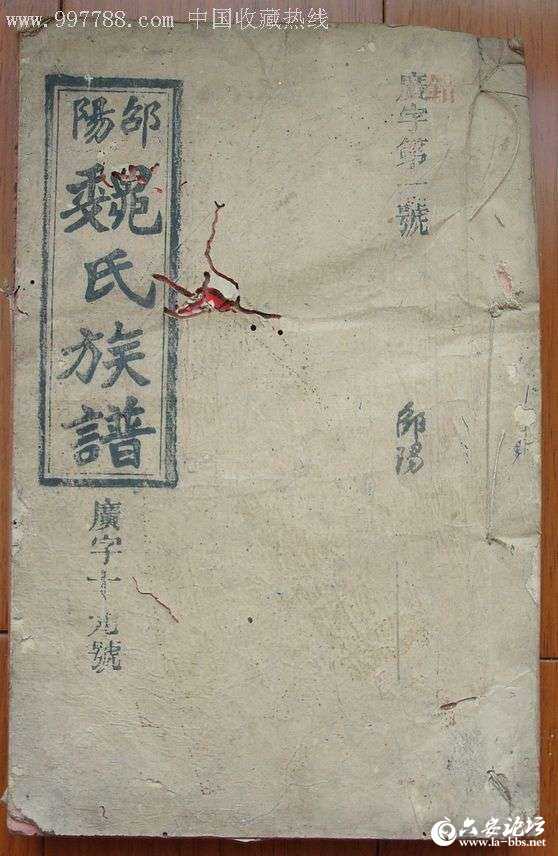 www.997788.com 中国收藏热线
廣字第一號
邵陽
邵陽
魏氏族譜
廣字十九號
六安论坛
www.la-bbs.net